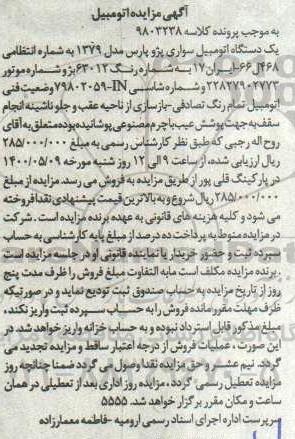 آگهی مزایده اتومبیل
به موجب پرونده کلاسه ۹۸۰۳۲۳۸
یک دستگاه اتومبیل سواری پژو پارس مدل ۱۳۷۹ به شماره انتظامی
۴۶۸ل۶۶-ایران۱۷ به شماره رنگ ۶۳۰۱۲بژ و شماره موتور
۲۲۸۲۷۹۰۲۷۷۳ و شماره شاسی IN-۷۹۸۰۲۰۵۹ وضعیت فنی
اتومبیل تمام رنگ تصادفی-بازسازی از ناحیه عقب و جلو ناشینه انجام
سقف به جهت پوشش عیب با چرم مصنوعی پوشانیده بوده متعلق به آقای
روح اله رجبی که طبق نظر کارشناس رسمی به مبلغ ۲۸۵/۰۰۰/۰۰۰
ریال ارزیابی شده، از ساعت ۹ الی ۱۲ روز شنبه مورخه ۱۴۰۰/۰۵/۰۹
در پارکینگ قلی پور از طریق مزایده به فروش می رسد. مزایده از مبلغ
۲۸۵/۰۰۰/۰۰۰ ریال شروع و به بالاترین قیمت پیشنهادی نقدا فروخته
می شود و کلیه هزینه های قانونی به عهده برنده مزایده است. شرکت
در مزایده منوط به پرداخت ده درصد از مبلغ پایه کارشناسی به حساب
سپرده ثبت و حضور خریدار یا نماینده قانونی او در جلسه مزایده است
. برنده مزایده مکلف است مابه التفاوت مبلغ فروش را ظرف مدت پنج
روز از تاریخ مزایده به حساب صندوق ثبت تودیع نماید و در صورتیکه
ظرف مهلت مقرر مانده فروش را به حساب سپرده ثبت واریز نکند،
مبلغ مذکور قابل استرداد نبوده و به حساب خزانه واریز خواهد شد. در
این صورت، عملیات فروش از درجه اعتبار ساقط و مزایده تجدید می
گردد. نیم عشر و حق مزایده نقدا وصول می گردد ضمنا چنانچه روز
مزایده تعطیل رسمی گردد، مزایده روز اداری بعد از تعطیلی در همان
ساعت و مکان مقرر برگزار خواهد شد. ۵۵۵۵
سرپرست اداره اجرای اسناد رسمی ارومیه -فاطمه معمارزاده